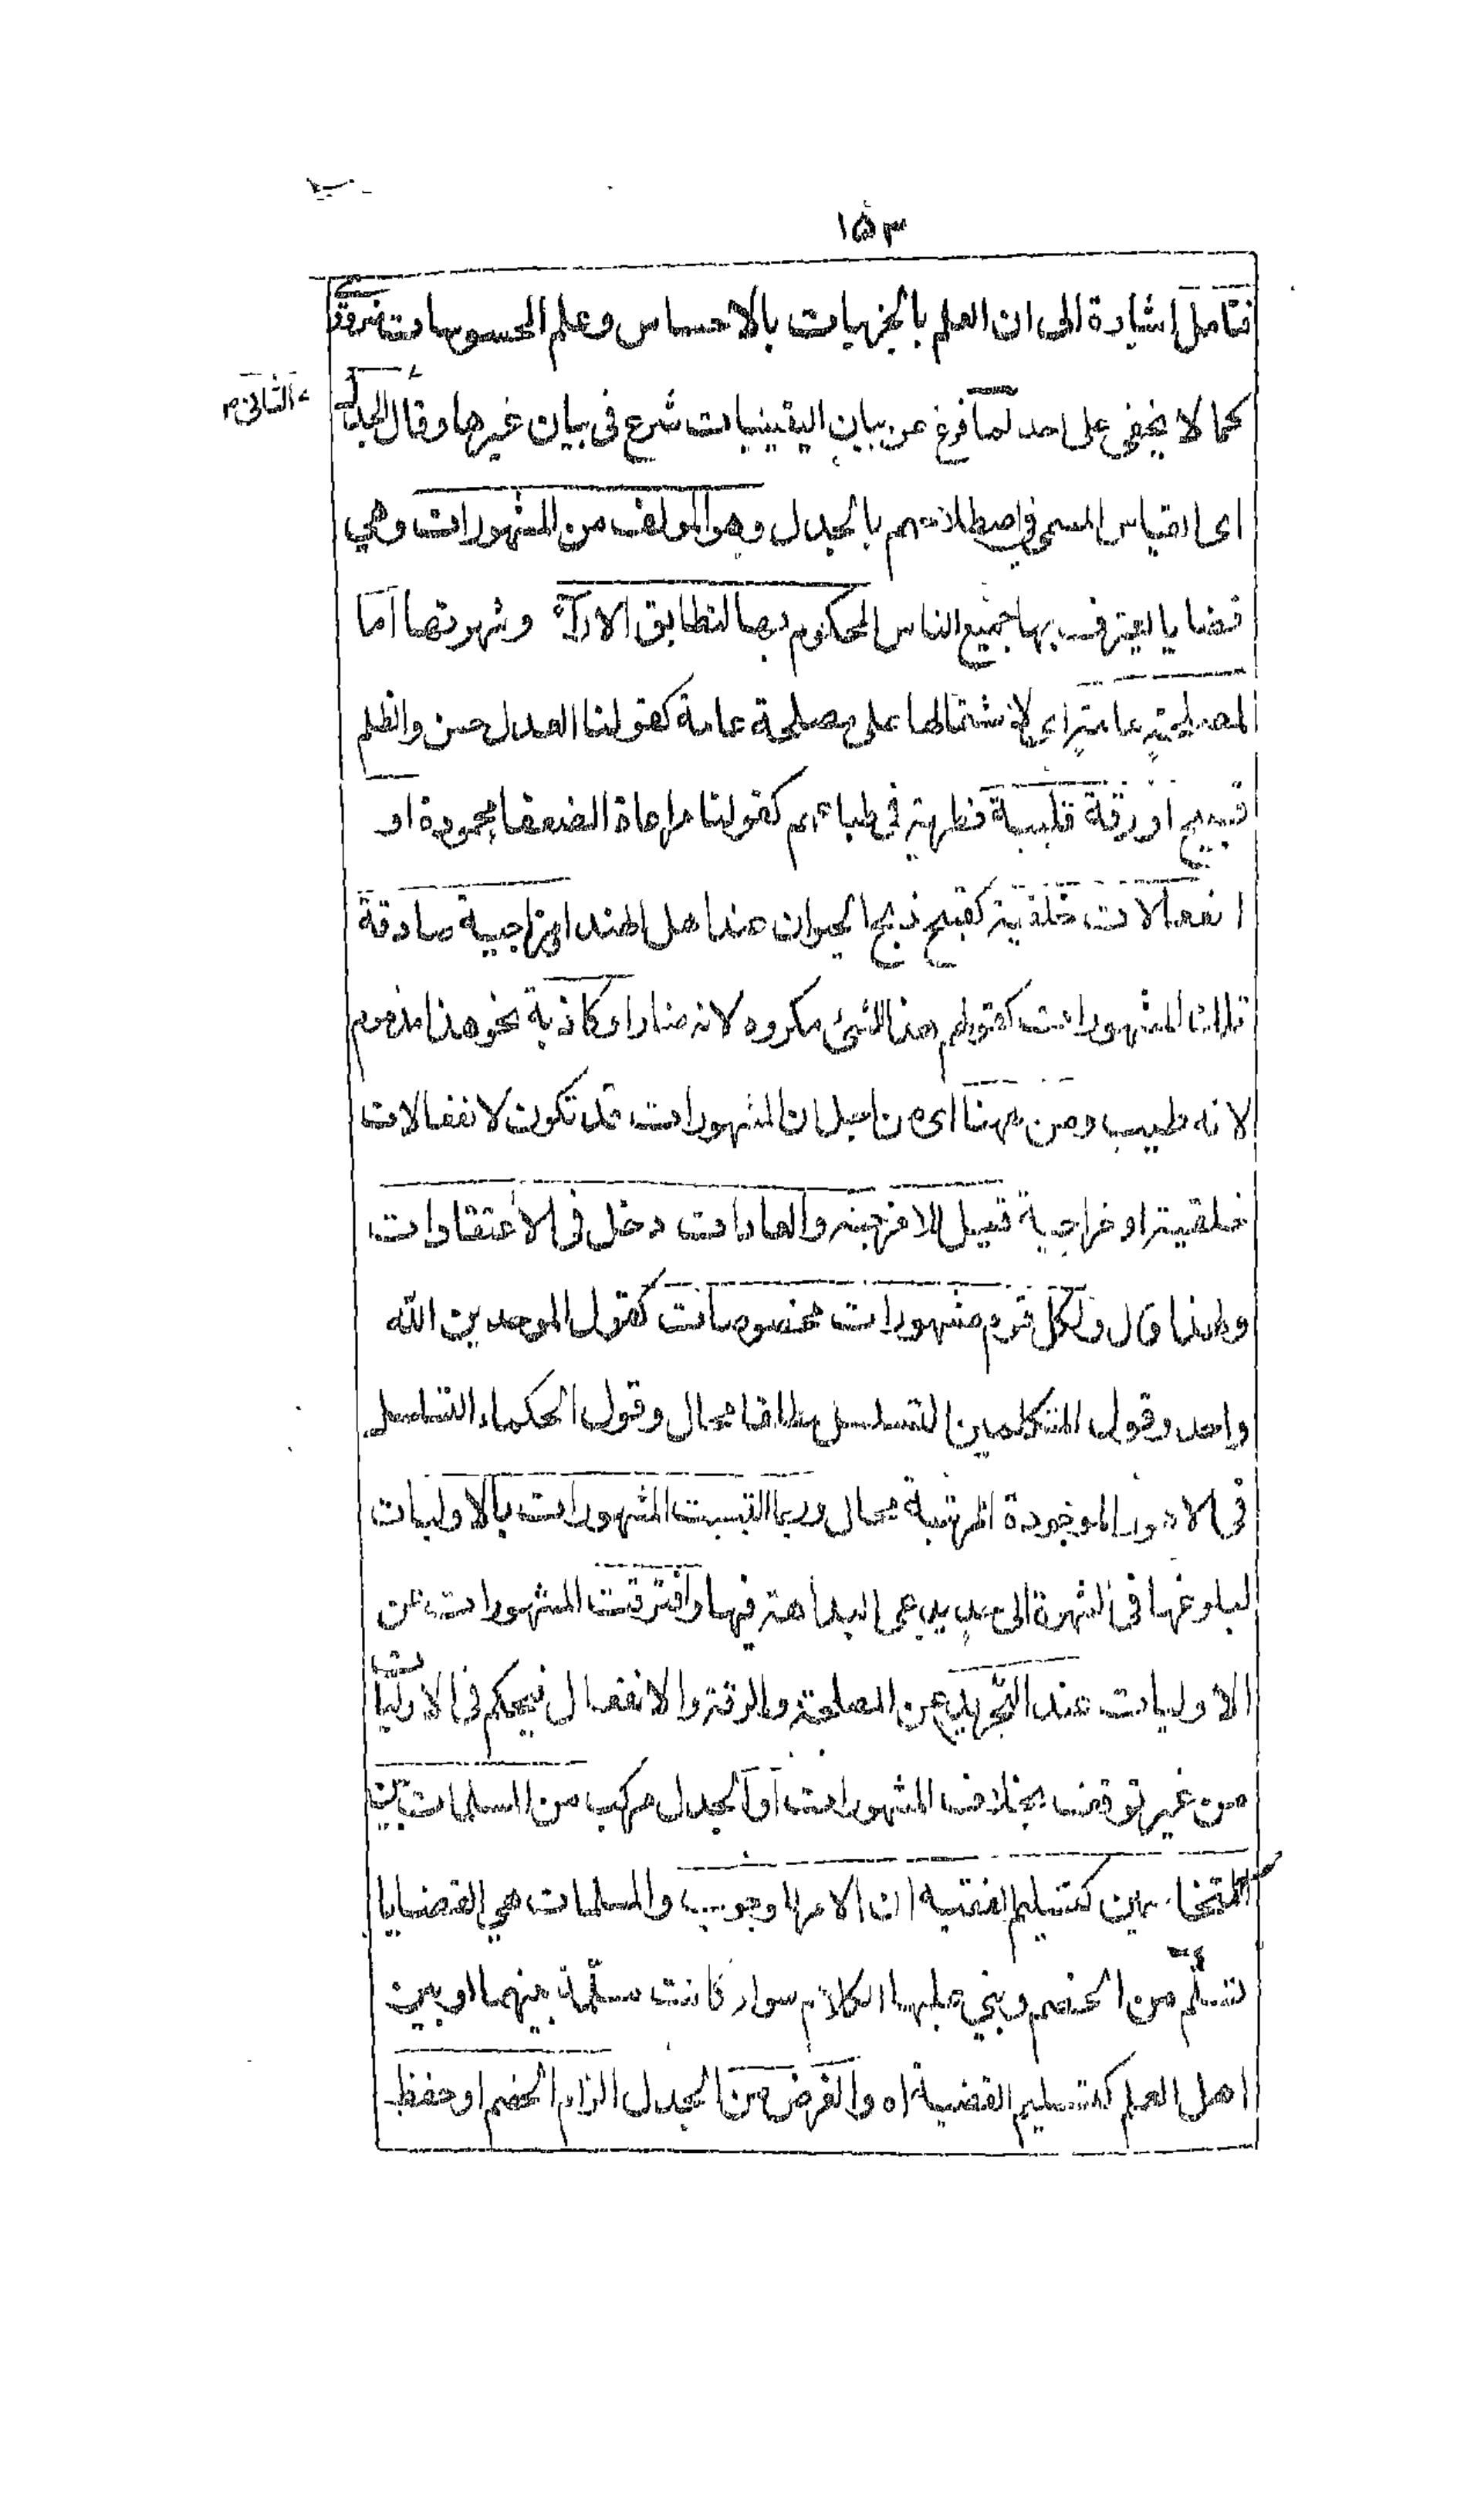 ١٥٣
فتامل اشارة الى ان العلم بالجزئيات بالاحساس وعلم المحسوسات
كما لا يخفى على احد لما فرغ عن بيان اليقينيات شرع فى بيان غيرها وقال الجدل
الثانى
اى القياس المسمى فى اصطلاحهم بالجدل وهو المولف من المشهورات وهى
قضايا يعترف بها جميع الناس المحكوم بها لتطابق الاراء وشهرتها اما
لمصلحة عامة اى لاشتمالها على مصلحة عامة كقولنا العدل حسن والظلم
قبيح او رقة قلبية فطرية فى طبائعهم كقولنا مراعاة الضعفا محمودة او
انفعالات خلقية كقبح ذبح الحيوان عند اهل الهند او مزاجية صادقة
تلك المشهورات كقولهم هذا الشئ مكروه لانه ضار او كاذبة نحو هذا مذموم
لانه طيب ومن ههنا اى من اجل ان المشهورات قد تكون لانفعالات
خلقية او مزاجية قيل للامزجة والعادات دخل فى الاعتقادات
ولهذا قال ولكل قوم مشهورات مخصوصات كقول الموحدين الله
واحد وقول المتكلمين التسلسل مطلقا محال وقول الحكماء التسلسل
فى الامور الموجودة المرتبة محال وربما التبست المشهورات بالاوليات
لبلوغها فى الشهرة الى حد يدعى البداهة فيها وافترقت المشهورات عن
الاوليات عند التجريد عن المصلحة والرقة والانفعال فيحكم فى الاوليات
من غير توقف بخلاف المشهورات او الجدل مركب من المسلمات بين
المتخاصمين كتسليم الفقيه ان الامر للوجوب والمسلمات هى القضايا
تسلم من الخصم وبنى عليها الكلام سواء كانت مسلمة بينهما او بين
اهل العلم كتسليم القضية اه والغرض من الجدل الزام الخصم او حفظ